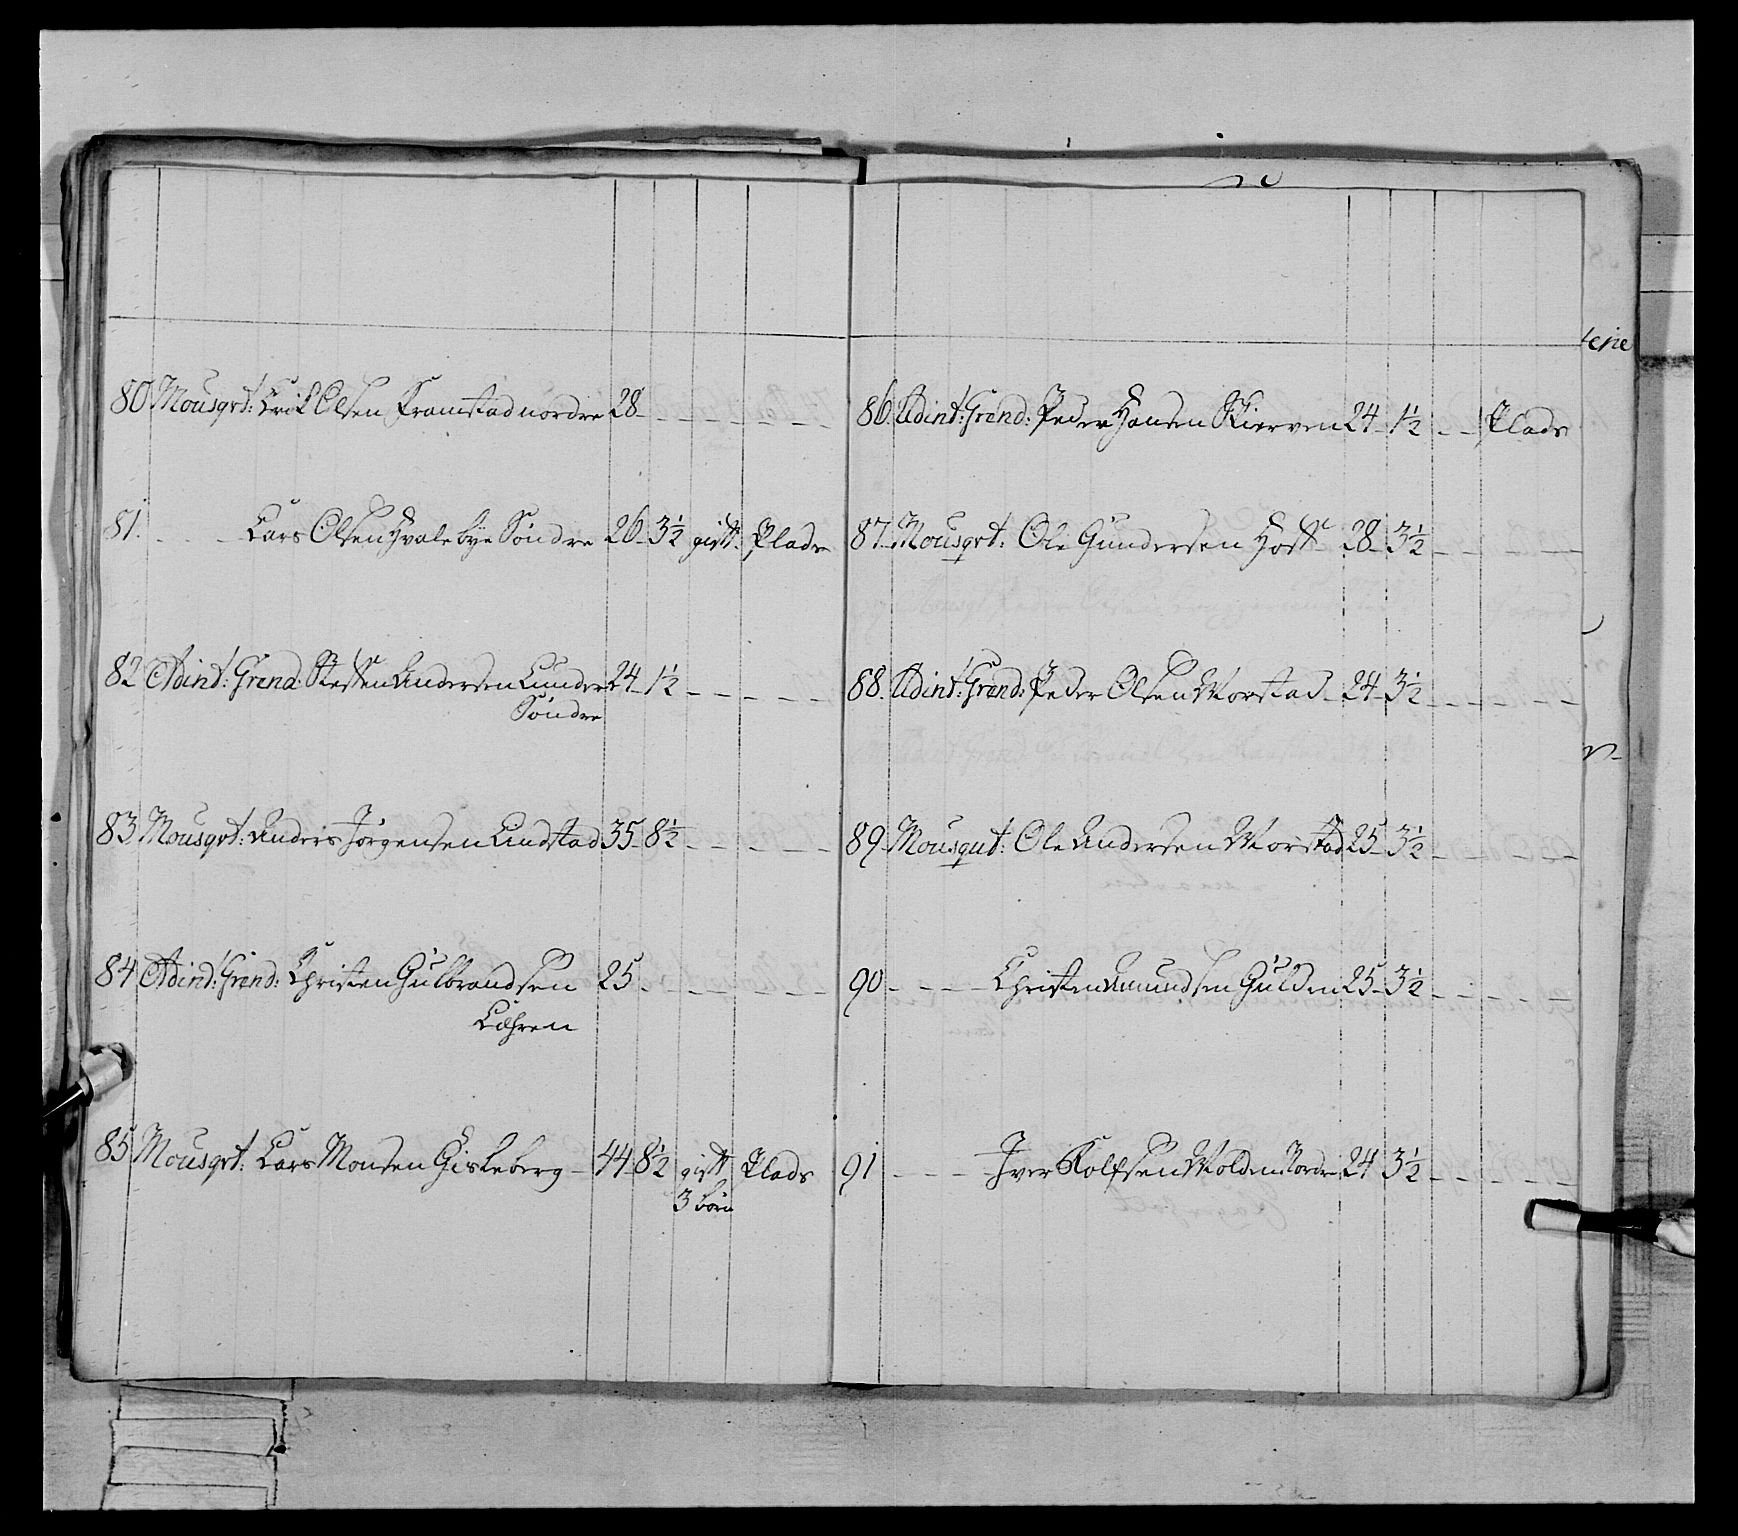 80 Mousqrt: Erik Olsen Framstad nordre 28 - - - - - -
81. - - - Lars Olsen Hvalebye Söndre 26 - 3½ gift. Plads
82 Adint: Grend: Steffen Andersen Lunder 24 - 1½ - - - -
Söndre
83 Mousqvt: Anders Jörgensen Lindstad 35 - 8½ - - - -
84 Adind: Grend: Christen Gulbrandsen 25 - - - - - -
Læhren
85 Mousqrt: Lars Monsen Gisleberg - 44 8½ gift Plads
3 börn
86. Adint: Grend: Peder Hansen Skierven 24 - 1½ - - Plads
87. Mousqrt: Ole Gundersen Hoff 28 - 3½ - - - -
88. Adint: Grend: Peder Olsen Worstad - 24 - 3½ - - - - -
89. Mousqut: Ole Andersen Worstad 25 - 3½ - - - -
90 - - - - Christen Amundsen Gulden 25 - 3½ - - - -
91 - - - - Iver Rolfsen Wolden Nordre 24 3½ - - - - -